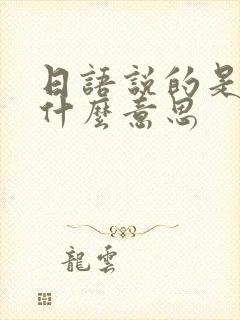 日語說的是
什麼意思
龍雲